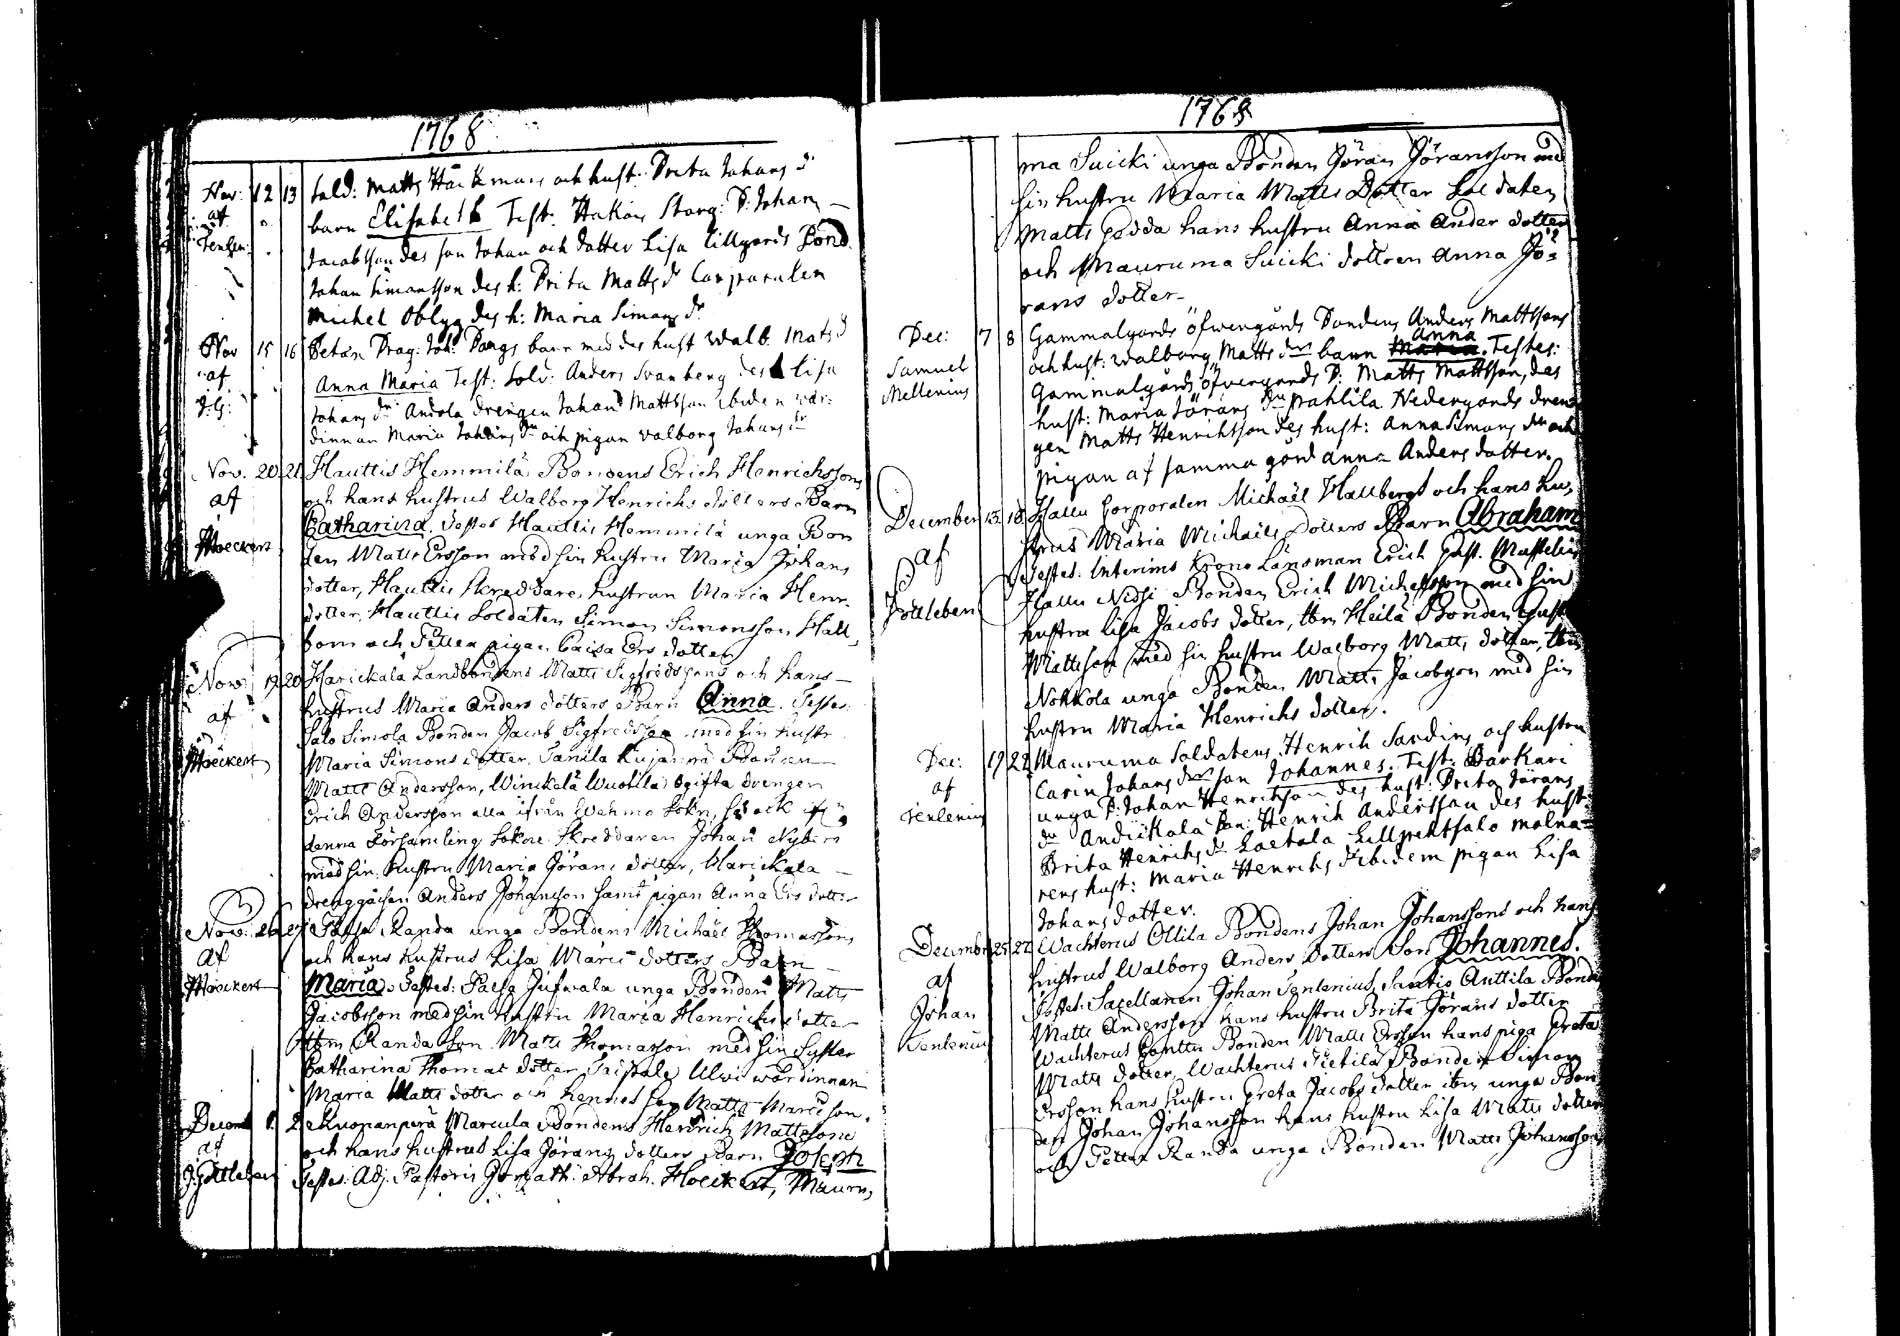 1768
Nov: 12 13 Sold: Matts Häckmans och hust: Brita Johans dr
af barn Elisabeth Test: Håkans Storg: B: Johan
Jacobsson des son Johan och dotter Lisa Lillgårds Bond.
Johan Simonsson des h: Brita Matts dr Corporalen
Michel Oblyg des h: Maria Simons dr
Nov 15 16 Drag: Joh: Pangs barn med des hust Walb. Mats d
af Anna Maria Test: Sold: Anders Svanberg des Lisa
Johans dr Andola drengen Johan Mattsson ibidem vär-
dinnan Maria Johans dr och pigan Valborg Johans dr
Nov. 20 21 Hauttis Hemmilä Bondens Erich Henrichssons
af och hans hustrus Walborg Henrichs dotters Barn
Catharina. Testes Hauttis Hemmilä unga Bon
Hoeckert den Matts Ersson med sin hustru Maria Johans
dotter, Hauttis skreddare hustrun Maria Henr.
dotter, Hauttis Soldaten Simon Simonsson Hall,
bom och Tetter pigan Caisa Ers dotter
Nov: 19 20 Harickala Landbondens Matts Sigfredssons och hans
af hustrus Maria Anders dotters Barn Anna. Testes
Salo Simola Bonden Jacob Sigfredsson med sin hustr.
Hoeckert Maria Simons dotter, Tanila Kujanpä Bonden
Matts Andersson, Winckelä Wuotila ogifta drengen
Erich Andersson alla ifrån Wehmo Sokn, så ock ifr:
denna Församling Sokne Skreddaren Johan Nyberg
med sin hustru Maria Jörans dotter, Harickala
drenggåssen Anders Johansson samt pigan Anna Ers dotter
Nov: 26 27 Randa unga Bondens Michaël Thomassons
af och hans hustrus Lisa Maris dotters Barn
Hoeckert Maria. Testes: Palsa Jufwala unga Bonden Matts
Jacobsson med sin hustru Maria Henrichs dotter
Itm Randa son Matts Thomasson med sin syster
Catharina Thomas dotter, Ulwi wärdinnan
Maria Matts dotter och hennes son Matts Mattsson.
Decemb 1. 2. Kuopanperä Marcula Bondens Henrich Mattssons
af och hans hustrus Lisa Jörans dotters Barn Joseph
J: Gottleben Testes: Adj: Pastoris Abrah. Hoeckert, Mauru,
1768
ma Suicki unga Bonden Jöran Jöransson med
sin hustru Maria Matts dotter Soldaten
Matts Gädda hans hustru Anna Anders dotter
och Mauruma Suicki dottren Anna Jö-
rans dotter
Dec: 7 8 Gammalgårds öfwergårds Bondens Anders Mattssons
Samuel och hust: Walborg Matts drs barn Anna. Testes:
Mellenius Gammalgårds öfvergårds B: Matts Mattsson, des
hust: Maria Jörans dr Pahlila Nedergårds dren-
gen Matts Henrichsson des hust: Anna Simons dr och
pigan af samma gård Anna Anders dotter.
December 15. 18. Hallu Corporalen Michaël Hallbergs och hans hu,
af strus Maria Michaels dotters Barn Abraham
Testes: Interims Krono Länsman Erich Gust. Mustelin
Gottleben Hallu Nissi Bonden Erich Michelsson med sin
hustru Lisa Jacobs dotter, Itm Heilä Bonden Gust.
Mattsson med sin hustru Walborg Matts dotter, Itm
Nokkola unga Bonden Matts Jacobsson med sin
hustru Maria Henrichs dotter.
Dec: 19 22 Mauruma Soldatens Henrik Sandins och hustru
af Carin Johans drs son Johannes. Test: Barkari
Tenlenius unga B: Johan Henrikson des hust: Brita Jörans
dr Andickala Bon: Henrik Andersson des hust:
Brita Henrichs dr Laetala Lillpentsalo Molna-
rens hust: Maria Henrichs dr ibidem pigan Lisa
Johans dotter.
Decembr 25 27 Wachterus Ollila Bondens Johan Johanssons och hans
af hustrus Walborg Anders dotters Son Johannes.
Johan Testes: Sacellanen Johan Tenlenius, Santio Anttila Bonde
Tenlenius Matts Andersson hans hustru Brita Jörans dotter
Wachterus Gonttu Bonden Matts Ersson hans piga Greta
Matts dotter, Wachterus Tietilä Bonden Simon
Ersson hans hustru Greta Jacobs dotter itm unga Bon-
den Johan Johansson hans hustru Lisa Matts dotter
och Tettar Randa unga Bonden Matts Johansson